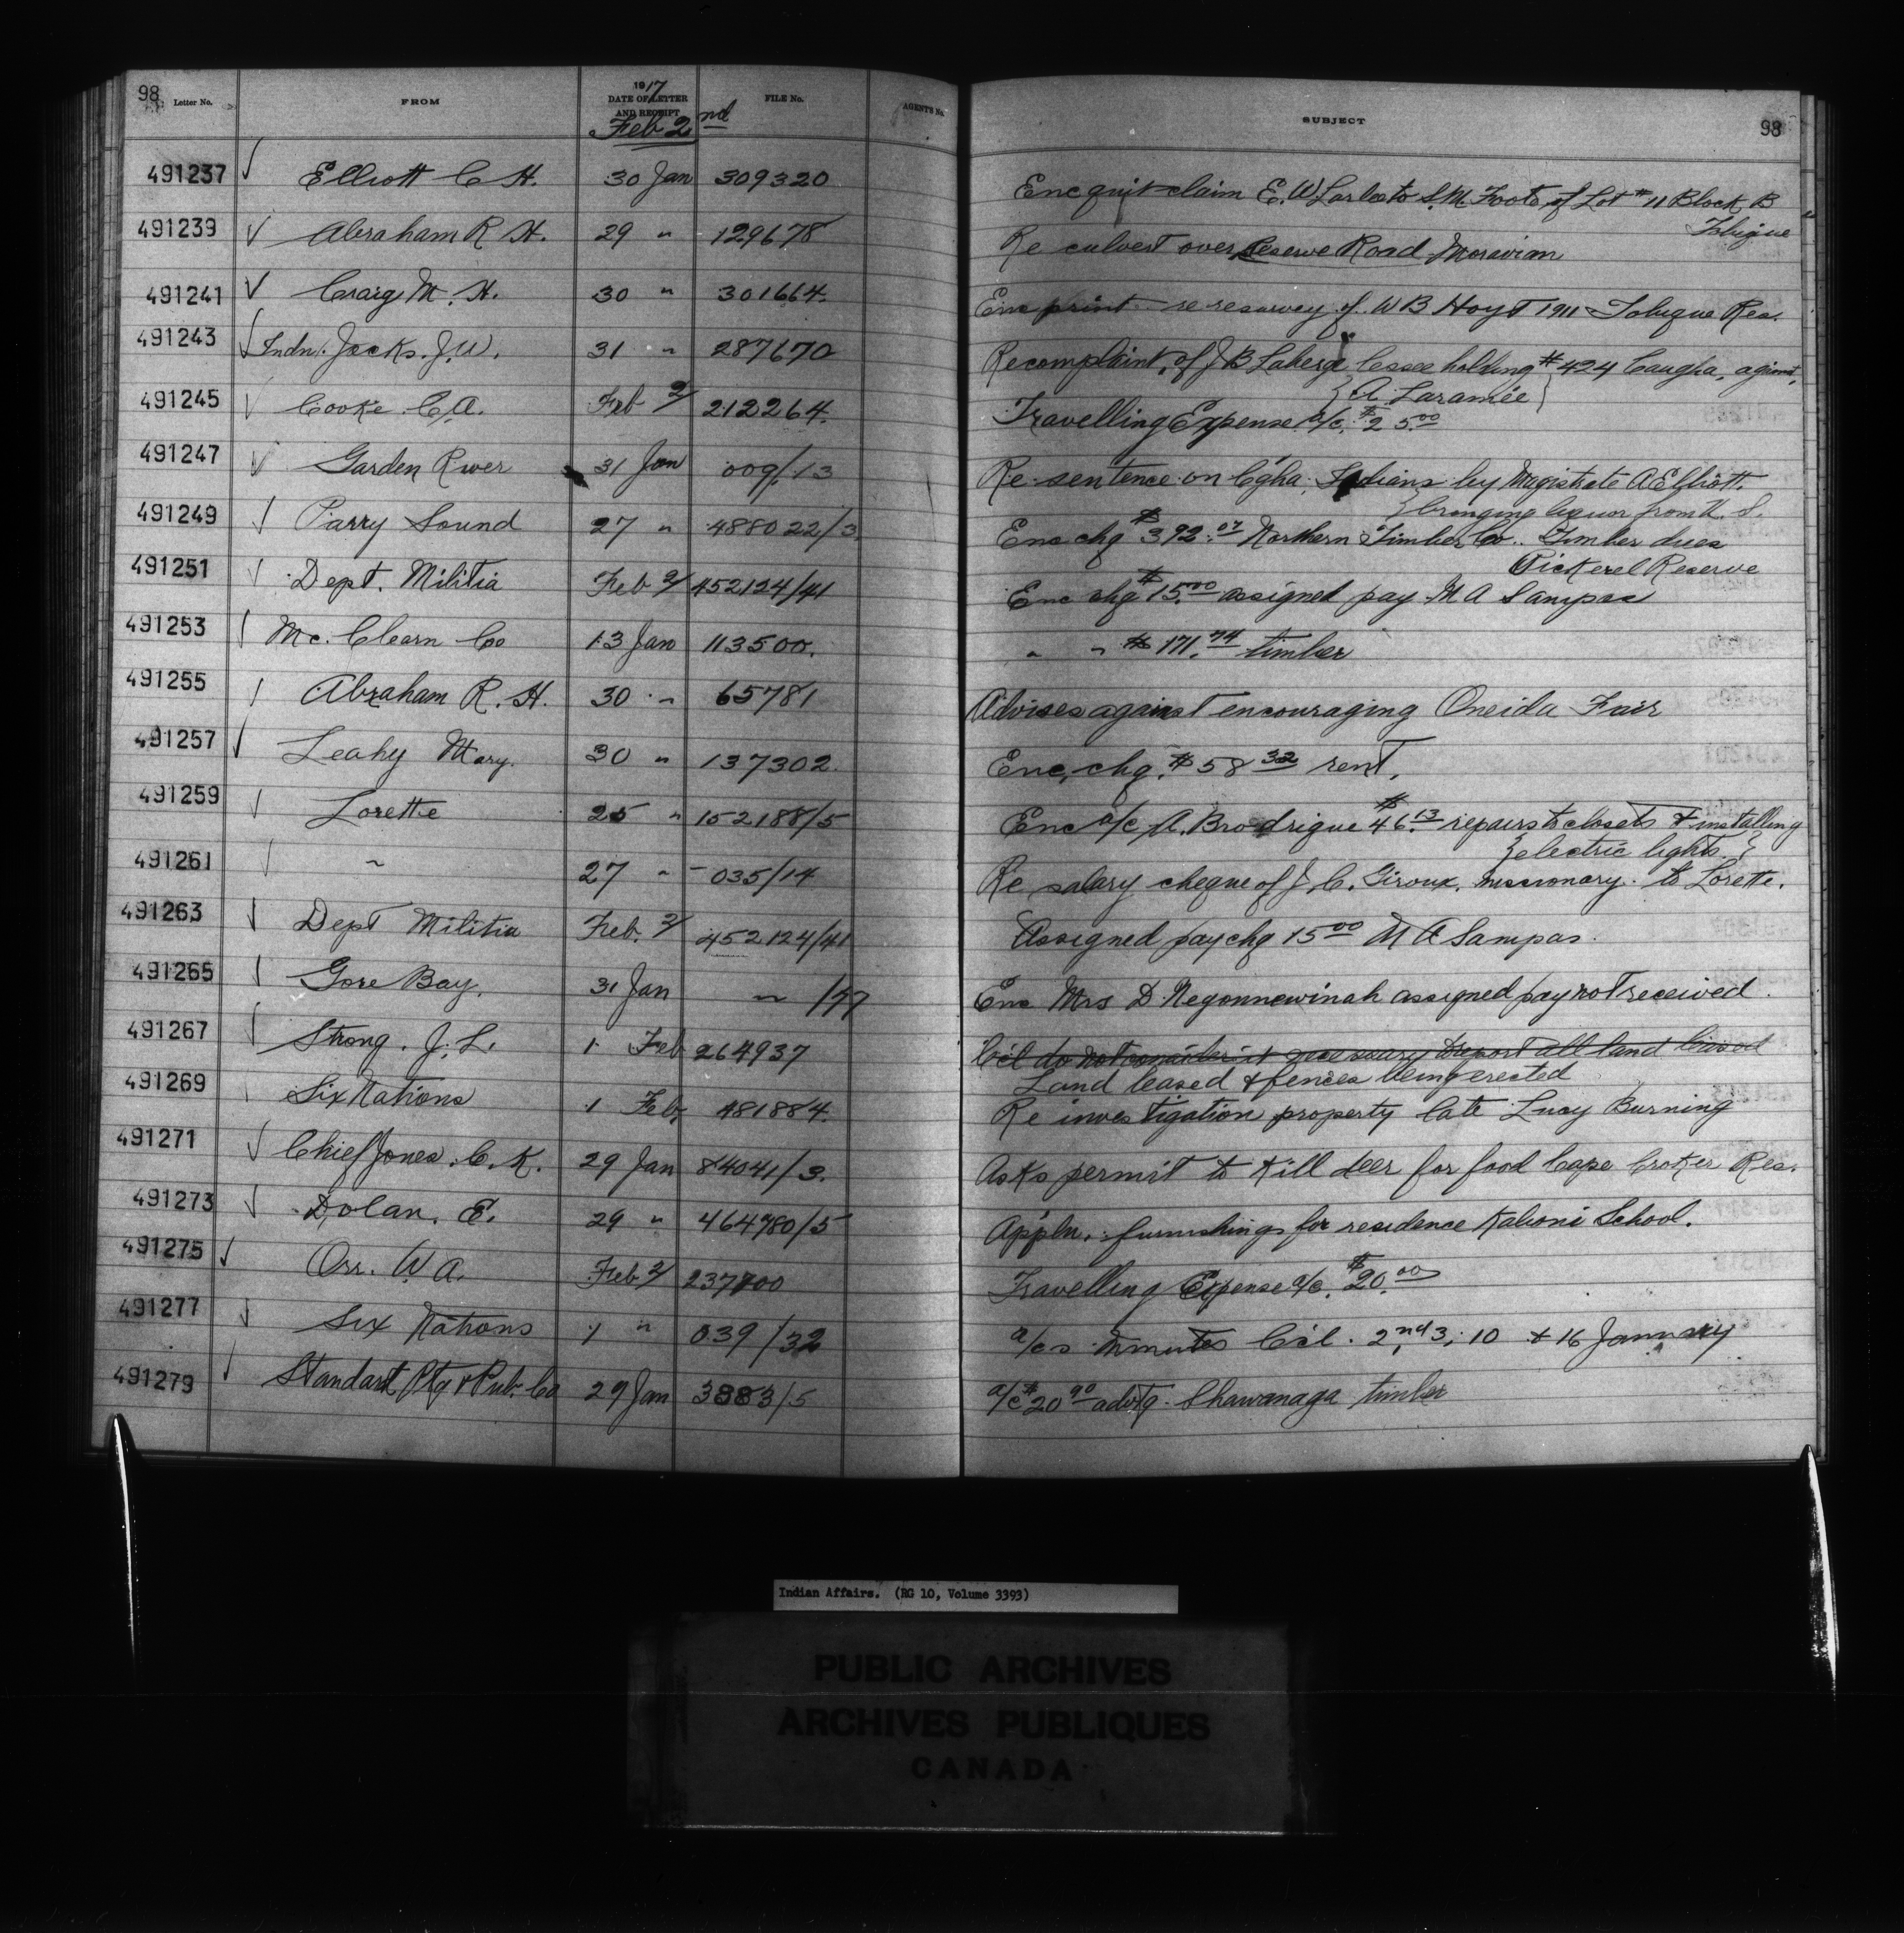 98
Letter No. FROM 1917 DATE OF LETTER AND RECEIPT FILE No. AGENT'S No. SUBJECT 98
Feb 2nd
491237 √ Elliott C H. 30 Jan 309320 Enc quit claim E. W to S. M. Foote of Lot # 11 Block B
Tobique
491239 √ Abraham R H. 29 " 129678 Re culvert over Reserve Road Moravian
491241 √ Craig M. H. 30 " 301664. Enc print re resurvey of W B Hoyt 1911 Tobique Res.
491243 √ Indn. Jocks. J. W. 31 " 287670 Re complaint of J B Laberge Lessee holding # 424 Caugha. against
{ A Laramée }
491245 √ Cooke C. A. Feb 2/ 212264. Travelling Expense a/c. $25.00
491247 √ Garden River 31 Jan 009/13 Re sentence on C'gha. Indians by Magistrate A Elliott.
} bringing liquor from U. S.
491249 √ Parry Sound 27 " 488022/3. Enc chq $392.07 Northern Timber Co. Timber dues
Pickerel Reserve
491251 √ Dept. Militia Feb 2/ 452124/41 Enc chq $15.00 assigned pay M A Sampas
491253 √ Mc. Clearn Co 13 Jan 113500. " " $171.74 timber
491255 √ Abraham R. H. 30 " 65781 Advises against encouraging Oneida Fair
491257 √ Leahy Mary. 30 " 137302. Enc. chq. $58.32 rent.
491259 √ Lorette 25 " 152188/5 Enc a/c A. Brodrigue $46.13 repairs to closets & installing
} electric lights. }
491261 √ " 27 " 035/14 Re salary cheque of J. C. Giroux, missionary to Lorette.
491263 √ Dept Militia Feb. 2/ 452124/41 Assigned pay chq 15.00 M A Sampas.
491265 √ Gore Bay. 31 Jan " /77 Enc Mrs D. Negonnewinah assigned pay not received.
491267 √ Strong. J. L. 1 Feb 264937 C'cl do not consider it necessary to report all land leased
Land leased & fences being erected
491269 Six Nations 1 Feb, 481884. Re investigation property late Lucy Burning
491271 √ Chief Jones. C. K. 29 Jan 84041/3. Asks permit to kill deer for food Cape Croker Res.
491273 √ Dolan. E. 29 " 464780/5 Appln. furnishings for residence Kahoni School.
491275 √ Orr. W. A. Feb 2/ 237700 Travelling Expense a/c. $20.00
491277 √ Six Nations 1 " 039/32 a/cs minutes C'cl. 2nd, 3, 10 & 16 January
491279 √ Standard Ptg & Pub. Co 29 Jan 3883/5 a/c $20.90 advtg. Shawanaga timber
Indian Affairs. (RG 10, Volume 3393)
PUBLIC ARCHIVES
ARCHIVES PUBLIQUES
CANADA